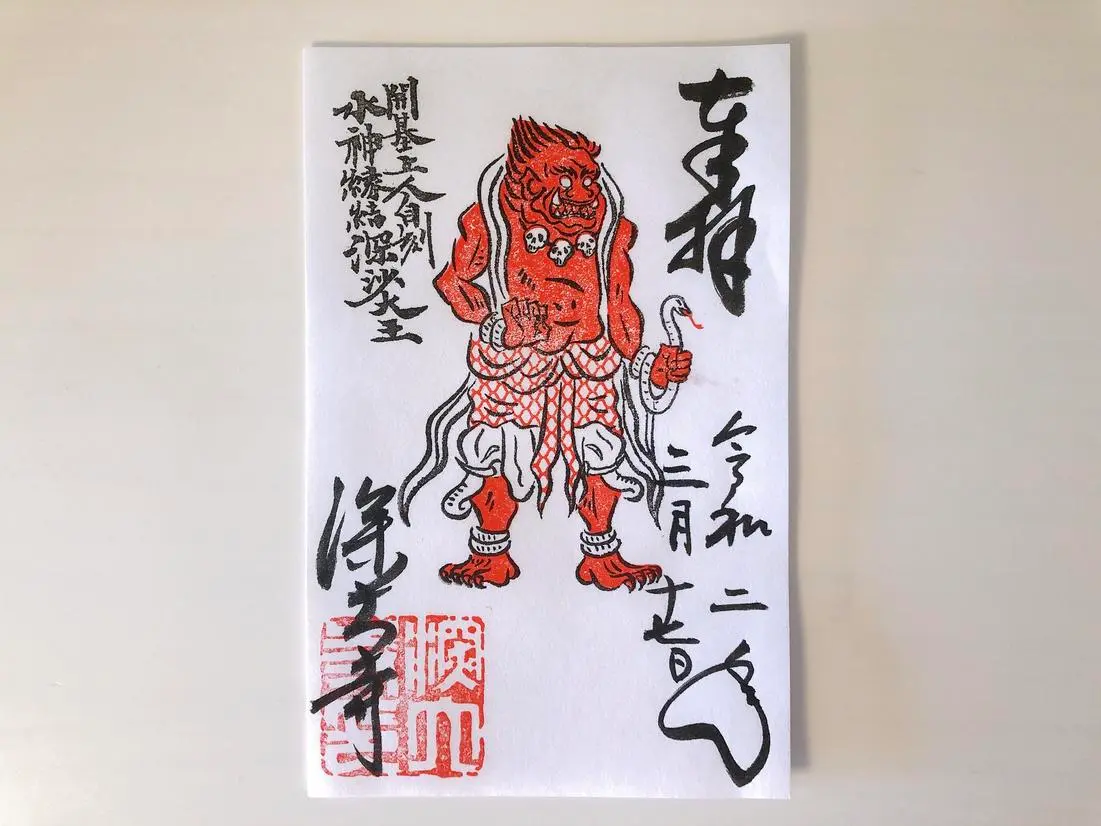 奉拝
令和二年
三月十七日
開基上人自刻
水神縁結深沙大王
深大寺